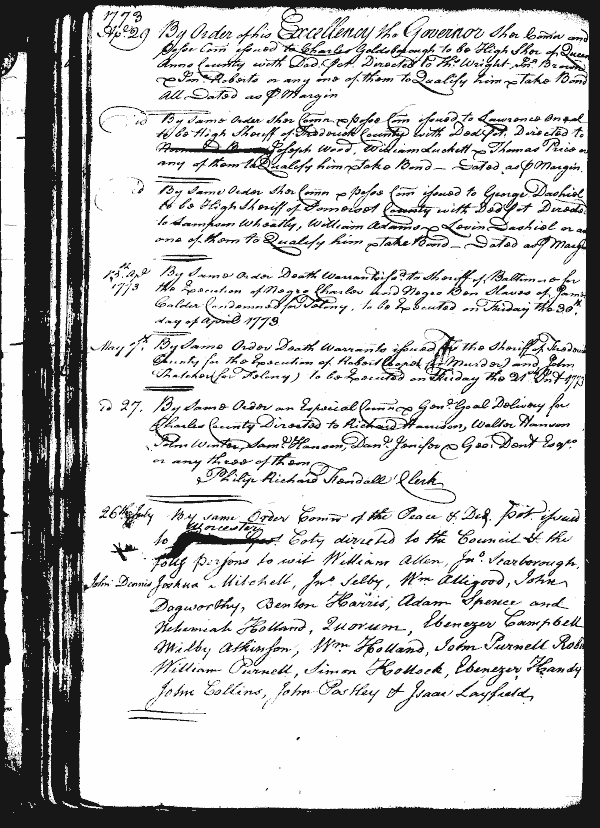 1773
Ap. 29 By Order of his Excellency the Governor Sher Comn and
posse Com issued to Charles Goldsborough to be High Sher of Queen
Anns County with Ded. Pot. Directed to Thos Wright, Jno Brown
& Jona Roberts or any one of them to Qualify him & take Bond
All Dated as P Margin
id By Same Order Sher Comn & posse Com issued to Lawrence Oneal
to be High Sheriff of Frederick County with Ded Pot. Directed to
Joseph Wood, William Luckett & Thomas Price or
any of them to Qualify him & take Bond — Dated as P Margin.
d By Same Order Sher Comn & posse Com issued to George Dashiel
to be High Sheriff of Somerset County with Ded Pot Directed
to Sampson Wheatly, William Adams & Levin Dashiel or any
one of them to Qualify him & take Bond — Dated as P Marg
15th Apl By Same Order Death Warrant issd to Sheriff of Baltimore for
1773 the Execution of Negro Charles and Negro Ben Slaves of James
Calder Condemned for Felony, to be Executed on Friday the 30th
day of April 1773
May 7th By Same Order Death Warrants issued to the Sheriff of Frederick
County for the Execution of Robert Cooper (for Murder) and John
Thatcher (for Felony) to be Executed on Friday the 21st Inst 1773
id 27. By Same Order an Especial Comn & Genl Goal Delivery for
Charles County Directed to Richard Harrison, Walter Hanson
John Winter, Saml Hanson, Danl Jenifer & Geo: Dent Esqrs
or any three of them
Philip Richard Fendall Clerk
26th July By same Order Comn of the Peace & Ded. Pot. issued
Worcester
to Coty directed to the Council & the
follg persons to wit William Allen, Jno Scarborough,
John Dennis Joshua Mitchell, Jno Selby, Wm Alligood, John
Dagworthy, Benton Harris, Adam Spence and
Nehemiah Holland, Quorum, Ebenezer Campbell
Milby Atkinson, Wm Holland, John Purnell Robi
William Purnell, Simon Kollock, Ebenezer Handy
John Collins, John Postley & Isaac Layfield